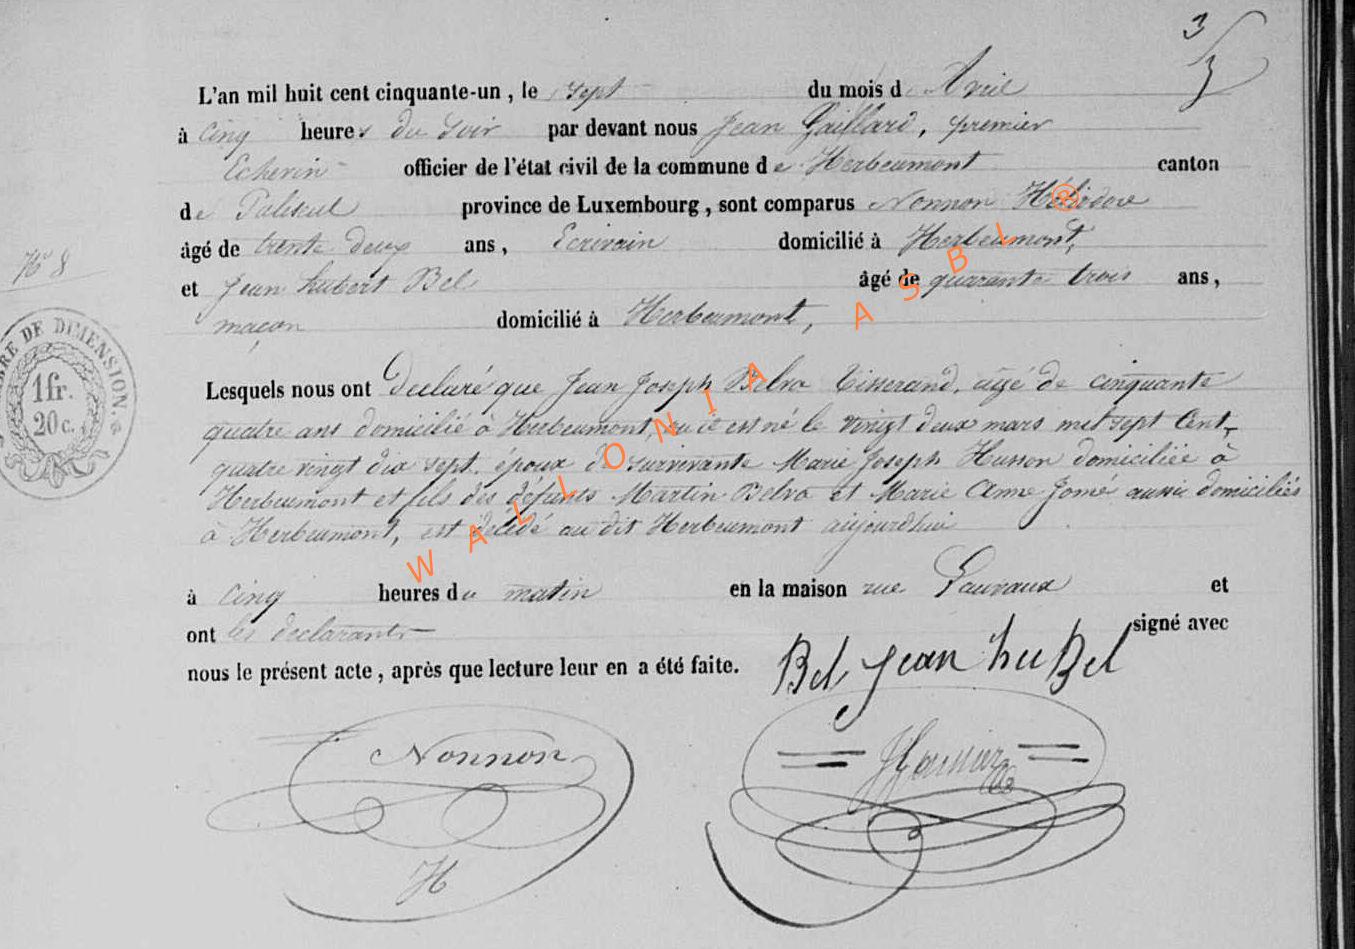 3
L'an mil huit cent cinquante-un, le sept du mois d'Avril
à cinq heures du soir par devant nous Jean Gaillard, premier
Echevin officier de l'état civil de la commune de Herbeumont canton
de Paliseul province de Luxembourg, sont comparus Nonnon Héliodore
âgé de trente deux ans, Ecrivain domicilié à Herbeumont,
et Jean hubert Bel âgé de quarante trois ans,
maçon domicilié à Herbeumont,
N° 8
TIMBRE DE DIMENSION.
1 fr.
20 c.
Lesquels nous ont declaré que Jean Joseph Belva tisserand, agé de cinquante
quatre ans domicilié à Herbeumont, ou il est né le vingt deux mars mil sept Cent
quatre vingt dix sept. époux de survivante Marie Joseph Husson domiciliée à
Herbeumont et fils des défunts Martin Belva et Marie Anne Jomé aussi domiciliés
à Herbeumont, est décédé au dit Herbeumont aujourdhui
à cinq heures du matin en la maison rue et
ont les declarants signé avec
nous le présent acte, après que lecture leur en a été faite.
Bel jean hu Bel
Nonnon
H
WALLONIA ASBL ®